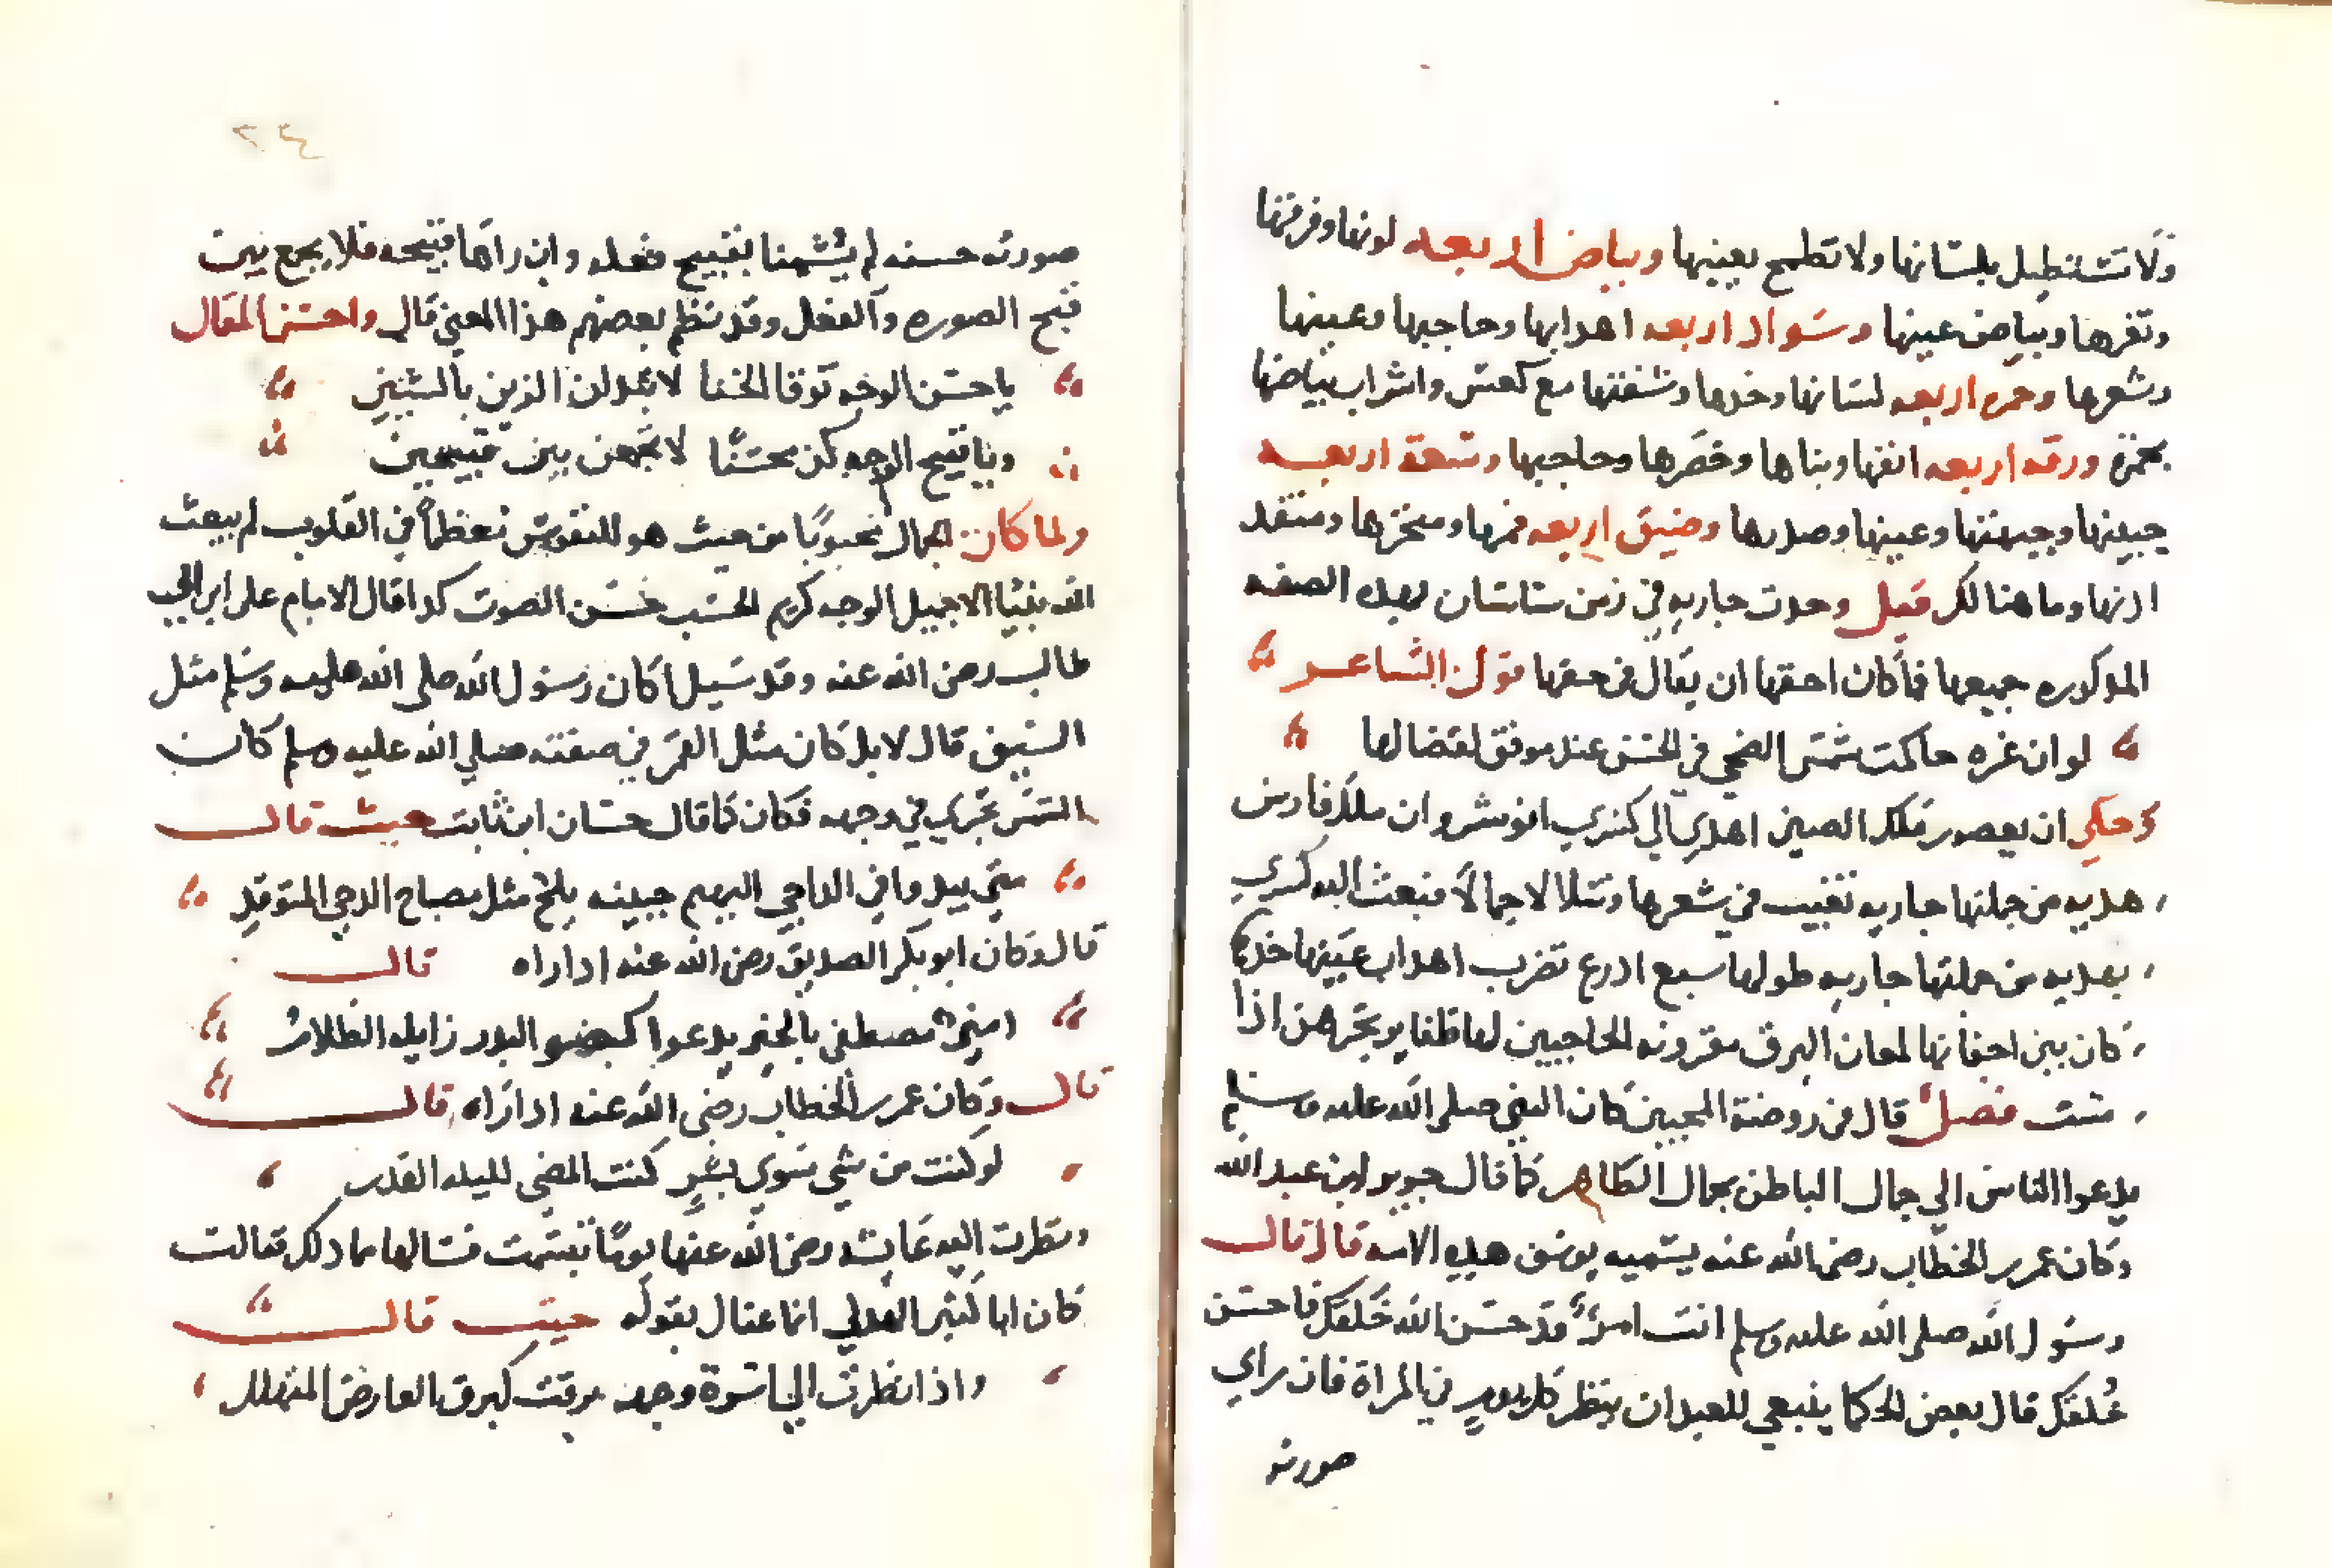 ولا تستطيل بلسانها ولا تطمح بعينها وبياض اربعه لونها وفرقها
وثغرها وبياض عينها وسواد اربعه اهدابها وحاجبها وعينها
وشعرها وحمره اربعه لسانها وخدها وشفتها مع لعس واشراب بياضها
بحمرة ورقه اربعه انفها وبنانها وخصرها وحاجبها وسعة اربعه
جبينها وجبهتها وعينها وصدرها وضيق اربعه فمها ومنخرها ومنفذ
اذنها وما هنالك قيل وجدت جاريه في زمن ساسان بهذه الصفه
المذكوره جميعها فما كان احقها ان يقال في حقها قول الشاعر
لو ان عزه حاكمت شمس الضحي في الحسن عند موفق لقضا لها
وحكي ان يعصور ملك الصين اهدي الي كسري انوشروان ملك فارس
هديه من جملتها جاريه تغيب في شعرها وتتلالا جمالا فبعث اليه كسري
بهديه من جملتها جاريه طولها سبع اذرع تضرب اهداب عينها خدها
كان بين اجفانها لمعان البرق مقرونه الحاجبين لها ظفاير تجرهن اذا
مشت فصل قال في روضة المحبين كان النبي صلى الله عليه وسلم
يدعوا الناس الي جمال الباطن بجمال الظاهر كما قال جرير ابن عبد الله
وكان عمر بن الخطاب رضي الله عنه يسميه يوسف هذه الامه قال قال
رسول الله صلى الله عليه وسلم انت امرؤ قد حسن الله خَلقك فاحسن
خُلقك قال بعض الحكما ينبغي للعبد ان ينظر كل يوم في المراة فان راي
صورته
٢٣
صورته حسنه لم يشنها بقبيح فعله وان راها قبيحه فلا يجمع بين
قبح الصوره والفعل وقد نظم بعضهم هذا المعني قال واحسن المقال
يا حسن الوجه توقا الخنا لا تبدلن الزين بالشين
ويا قبيح الوجه كن محسنا لا تجمعن بين قبيحين
ولما كان الجمال محبوبا من حيث هو للنفوس معظما في القلوب لم يبعث
الله نبيا الا جميل الوجه كريم الحسب حسن الصوت كذا قال الامام على ابن ابي
طالب رضي الله عنه وقد سيل اكان رسول الله صلى الله عليه وسلم مثل
السيف قال لا بل كان مثل القمر في صفته صلي الله عليه وسلم كان
الشمس تجري في وجهه فكان كما قال حسان ابن ثابت حيث قال
متي يبدوا في الداجي البهيم جبينه يلح مثل مصباح الدجي المتوقد
قال وكان ابو بكر الصديق رضي الله عنه اذا راه قال
امين مصطفى بالخير يدعوا كضو البدر زايله الظلام
قال وكان عمر بن الخطاب رضى الله عنه اذا راه قال
لو كنت من شي سوي بشر كنت المضي لليله القدر
ونظرت اليه عايشه رضي الله عنها يوما فتبسمت فسالها مما ذلك فقالت
كان ابا كثير الهذلي انما عنال بقوله حيث قال
واذا نظرت الي اسرة وجهه برقت كبرق العارض المتهلل